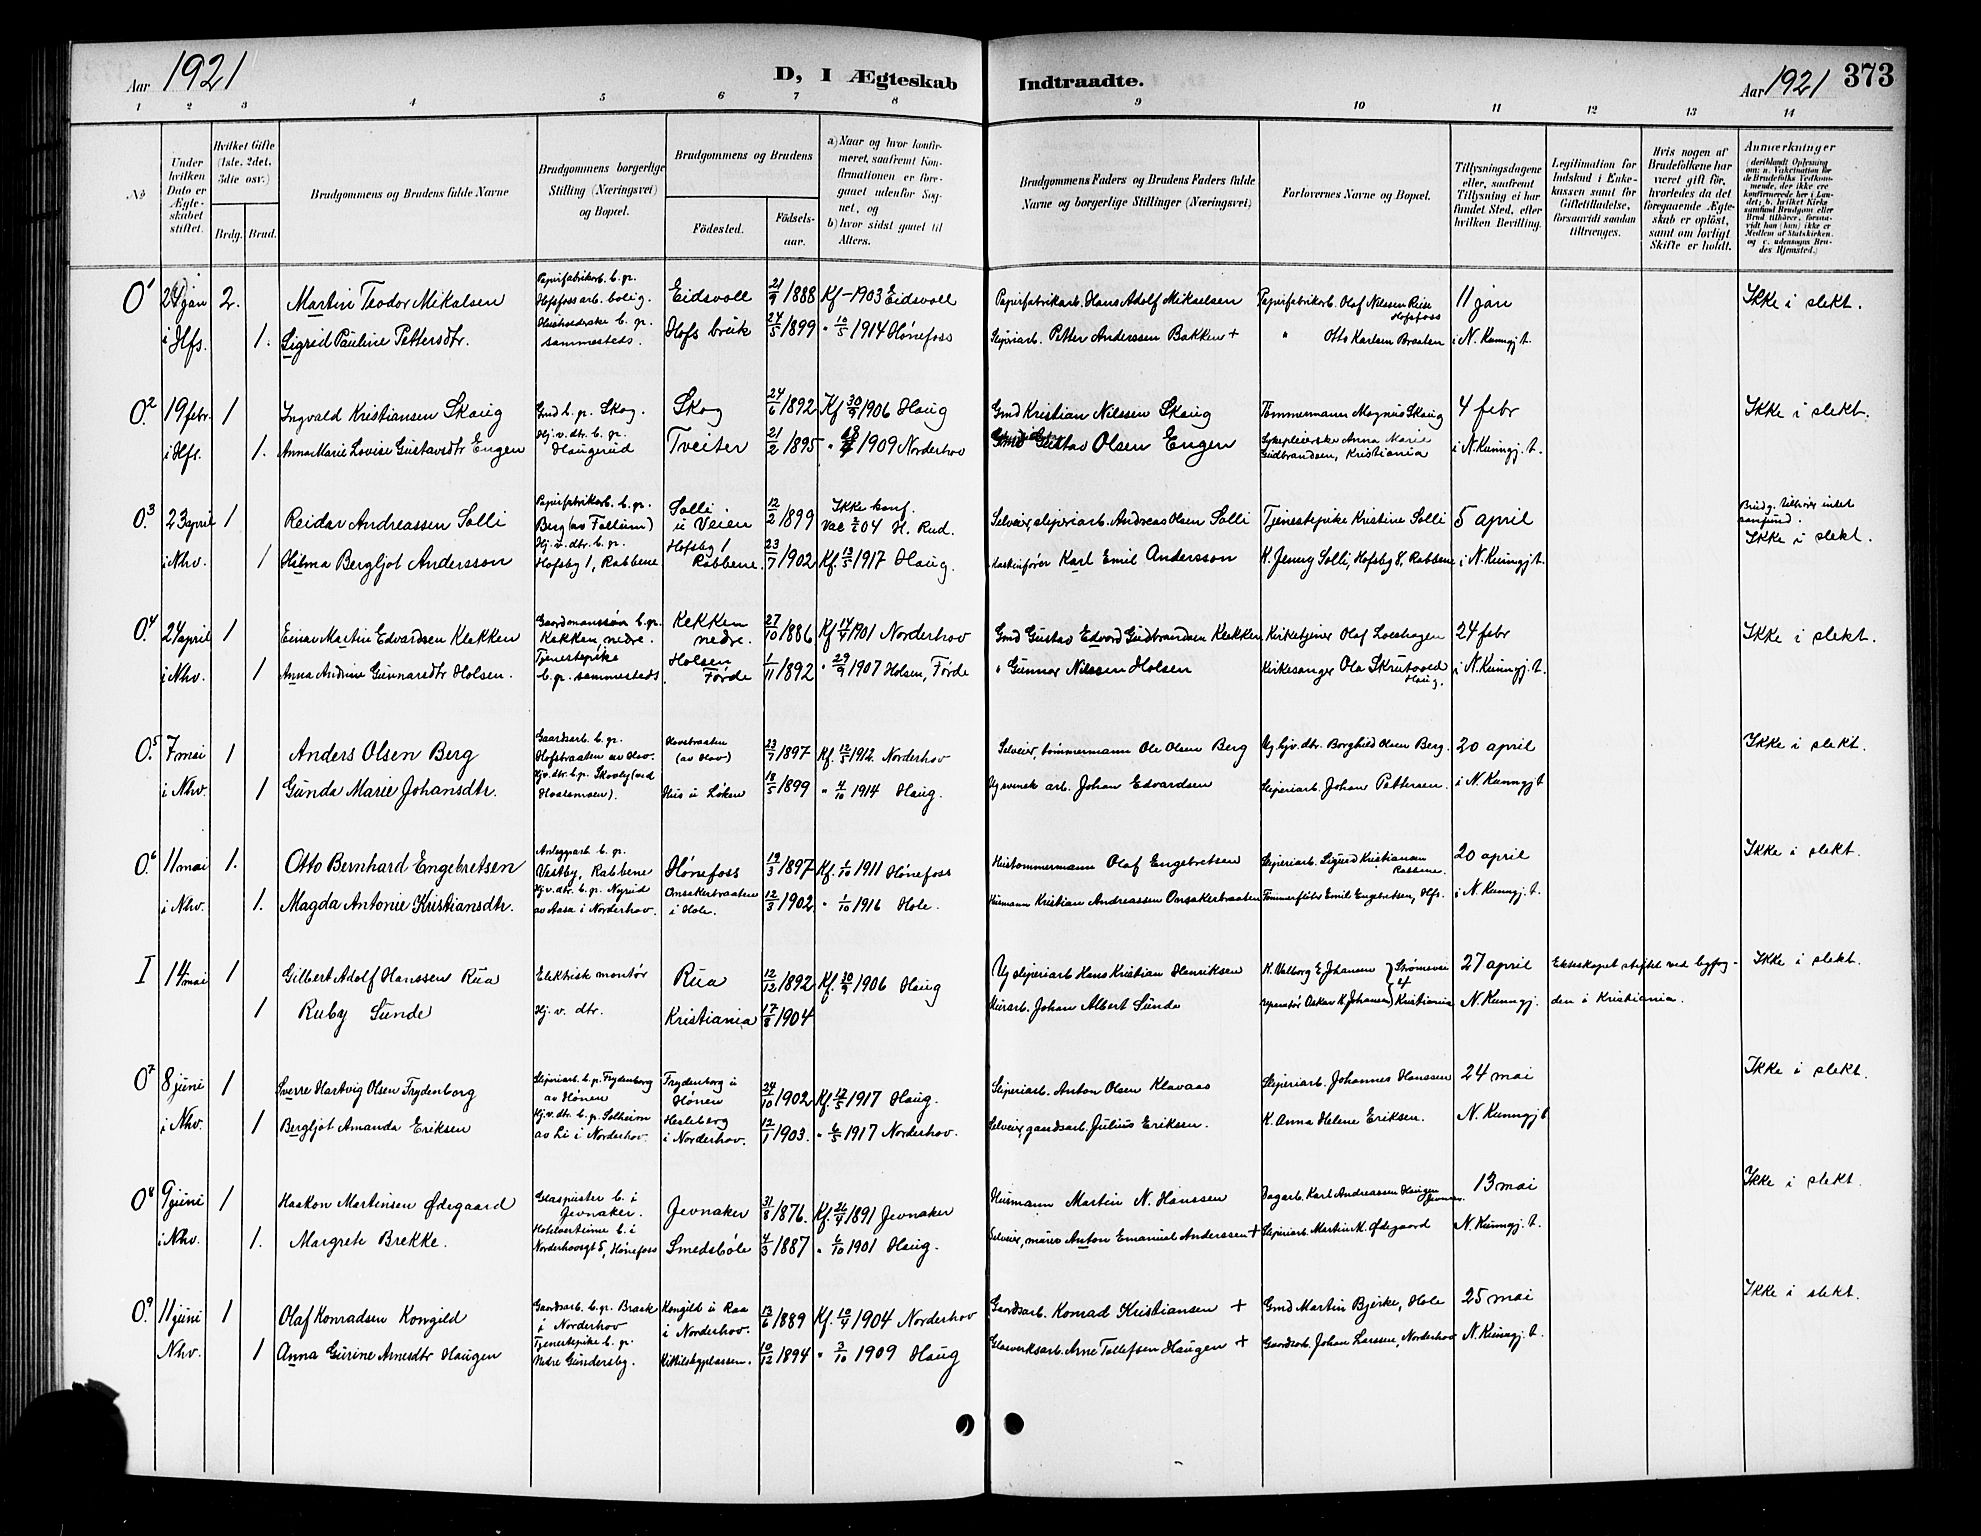 Aar 1921
D, I Ægteskab Indtraadte.
Aar 1921 373
1 2 3 4 5 6 7 8 9 10 11 12 13 14
No
Under hvilken Dato er Ægteskabet stiftet.
Hvilket Gifte (1ste, 2det, 3die osv.)
Brdg. Brud.
Brudgommens og Brudens fulde Navne
Brudgommens borgerlige Stilling (Næringsvei) og Bopæl.
Brudgommens og Brudens
Fødested.
Fødselsaar.
a) Naar og hvor konfirmeret, saafremt Konfirmationen er foregaaet udenfor Sognet, og
b) hvor sidst gaaet til Alters.
Brudgommens Faders og Brudens Faders fulde Navne og borgerlige Stillinger (Næringsvei)
Forlovernes Navne og Bopæl.
Tillysningsdagene eller, saafremt Tillysning ei har fundet Sted, efter hvilken Bevilling.
Legitimation for Indskud i Enkekassen samt for Giftetilladelse, forsaavidt saadan tiltrænges.
Hvis nogen af Brudefolkene har været gift før, hvorledes da det foregaaende Ægteskab er opløst, samt om lovligt Skifte er holdt.
Anmerkninger (deriblandt Oplysning om: a. Vakcination for de Brudefolks Vedkommende, der ikke ere konfirmerede her i Landet; b. hvilket Kirkesamfund Brudgom eller Brud tilhører, forsaavidt han (hun) ikke er Medlem af Statskirken, og c. udensogns Brudes Hjemsted.)
O 1 29 jan 2. Martin Teodor Mikalsen Papirfabrikarb. b. pr. Hofsfoss arb. bolig. Eidsvoll 21/9 1888 Kf - 1903 Eidsvoll Papirfabrikarb. Hans Adolf Mikaelsen Papirfabrikarb. Olaf Nilssen Reise Hofsfoss 11 jan Ikke i slekt.
i Hfs. 1. Sigrid Pauline Pettersdtr. Husholderske b. pr. sammesteds. Hofs bruk 24/5 1899 " 10/5 1914 Hønefoss Sliperiarb. Petter Anderssen Bakken + " Otto Karlsen Braaten i N. Kunngj. t.
O. 2 19 febr. 1 Ingvald Kristiansen Skaug Gmd b. pr. Skog. Skog 24/6 1892 Kf 30/9 1906 Haug Gmd Kristian Nilssen Skaug Tømmermann Magnus Skaug 4 febr Ikke i slekt.
i Hfs. 1. Anna Marie Lovise Gustavsdtr Engen Hj. v. dtr. b. pr. Haugerud Tveiter 21/2 1895 " 1909 Norderhov Gustav Olsen Engen Sykepleierske Anna Marie Gudbrandsen, Kristiania i N. Kunngj. t.
O. 3 23 april 1 Reidar Andreassen Solli Papirfabrikarb. b. pr. Berg (av Follum) Solli u Veien 12/2 1899 Ikke konf. Vac 04 H. Rud. Selveier, sliperiarb. Andreas Olsen Solli Tjenestepike Kristine Solli 5 april Brudg. tilhører intet samfund. Ikke i slekt.
i Nhv. 1 Hilma Bergljot Andersson Hj. v. dtr. b. pr. Hofsby 1, Rabbene Hofsby 1 Rabbene. 23/7 1902 Kf. 13/5 1917 Haug. Maskinfører Karl Emil Andersson K. Jenny Solli, Hofsby 8, Rabbene i N. Kunngj. t.
O. 4 24 april 1 Einar Martin Edvardsen Klekken Gaardmannssøn b. pr. Klekken, nedre. Klekken nedre. 27/10 1886 Kf 14/4 1901 Norderhov Gmd Gustav Edvard Gudbrandsen Klekken Kirketjener Olaf Loeshagen 24 febr Ikke i slekt.
i Nhv. 1 Anna Andrine Gunnarsdtr Holsen. Tjenestepike b. pr. sammesteds Holsen Førde 1/11 1892 " 29/9 1907 Holsen, Førde " Gunnar Nilssen Holsen Kirkesanger Ola Skrutvold Haug. i N. Kunngj. t.
O. 5 7 mai 1 Anders Olsen Berg Gaardsarb. b. pr. Hofsbraaten av Hov. Hovsbraaten (av Hov) 23/7 1897 Kf. 12/5 1912. Norderhov Selveier, tømmermann Ole Olsen Berg Ug. hjv. dtr. Borghild Olsen Berg. 20 april Ikke i slekt.
i Nhv. 1 Gunda Marie Johansdtr. Hjv. dtr. b. pr. Skovly (ved Hvalsmoen). Hus u Løken 18/5 1899 " 4/10 1914 Haug. Ug svensk arb. Johan Edvardsen Sliperiarb. Johan Pettersen. i N. Kunngj. t.
O. 6 11 mai 1. Otto Bernhard Engebretsen Anleggsarb. b. pr. Vestby, Rabbene Hønefoss 19/3 1897 Kf. 1/10 1911 Hønefoss Hustømmermann Olaf Engebretsen Sliperiarb. Sigurd Kristiansen Rabbene. 20 april Ikke i slekt.
i Nhv. 1. Magda Antonie Kristiansdtr. Hj. v. dtr. b. pr. Nyrud av Aasa i Norderhov. Onsakerbraaten i Hole. 12/3 1902 " 1/10 1916 Hole. Husmann Kristian Andreassen Onsakerbraaten Tømmerfløter Emil Engebretsen, Hfs. i N. Kunngj. t.
I 14 mai 1 Gilbert Adolf Hanssen Rua Elektrisk montør Rua 12/12 1892 Kf. 30/9 1906 Haug Ug sliperiarb Hans Kristian Henriksen K. Valborg E. Johansen } Strømsvei 4 27 april Ekteskapet stiftet ved byfog- Ikke i slekt.
1 Ruby Sunde Hj. v. dtr. Kristiania 17/8 1904 Murarb. Johan Albert Sunde reparatør Oskar K. Johansen } Kristiania N. Kunngj. den i Kristiania.
O 7 8 juni 1 Sverre Hartvig Olsen Frydenborg Sliperiarb. b. pr. Frydenborg av Hønen Frydenborg u Hønen 24/10 1902 Kf. 13/5 1917 Haug. Sliperiarb. Anton Olsen Klavaas Sliperiarb. Johannes Hanssen 24 mai Ikke i slekt.
i Nhv. 1 Bergljot Amanda Eriksen Hj. v. dtr. b. pr. Solheim av Li i Norderhov. Hesleberg i Norderhov. 12/1 1903. " 6/5 1917 Norderhov. Selveier, gaardsarb. Julius Eriksen. K. Anna Helene Eriksen. N. Kunngj. t
O 8 9 juni 1 Haakon Martinsen Ødegaard Glaspuster b. i Jevnaker. Jevnaker 31/8 1876. Kf. 26/4 1891 Jevnaker Husmann Martin N. Hanssen Dagarb. Karl Andreassen Haugen Jevnaker. 13 mai Ikke i slekt.
i Nhv. 1. Margrete Brekke. Hotelvertinne b. i Norderhovsgt 5, Hønefoss Smedsbøle 4/3 1887 " 6/10 1901 Haug. Selveier, murer Anton Emanuel Anderssen + Sliperiarb. Martin M. Ødegaard N. Kunngj. t.
O. 9 11 juni 1 Olaf Konradsen Kongild Gaardsarb. b. pr. Braak i Norderhov Kongild u Raa i Norderhov. 13/6 1889 Kf. 10/4 1904 Norderhov Gaardsarb. Konrad Kristiansen + Gmd Martin Bjerke, Hole 25 mai Ikke i slekt.
Nhv. 1 Anna Gurine Arnesdtr Haugen Tjenestepike b. pr. Nedre Gundersby. Kittilsbyplassen. 10/12 1894 " 3/10 1909 Haug Glasverksarb. Arne Tollefsen Haugen + Gaardsarb. Johan Larssen, Norderhov N. Kunngj. t.